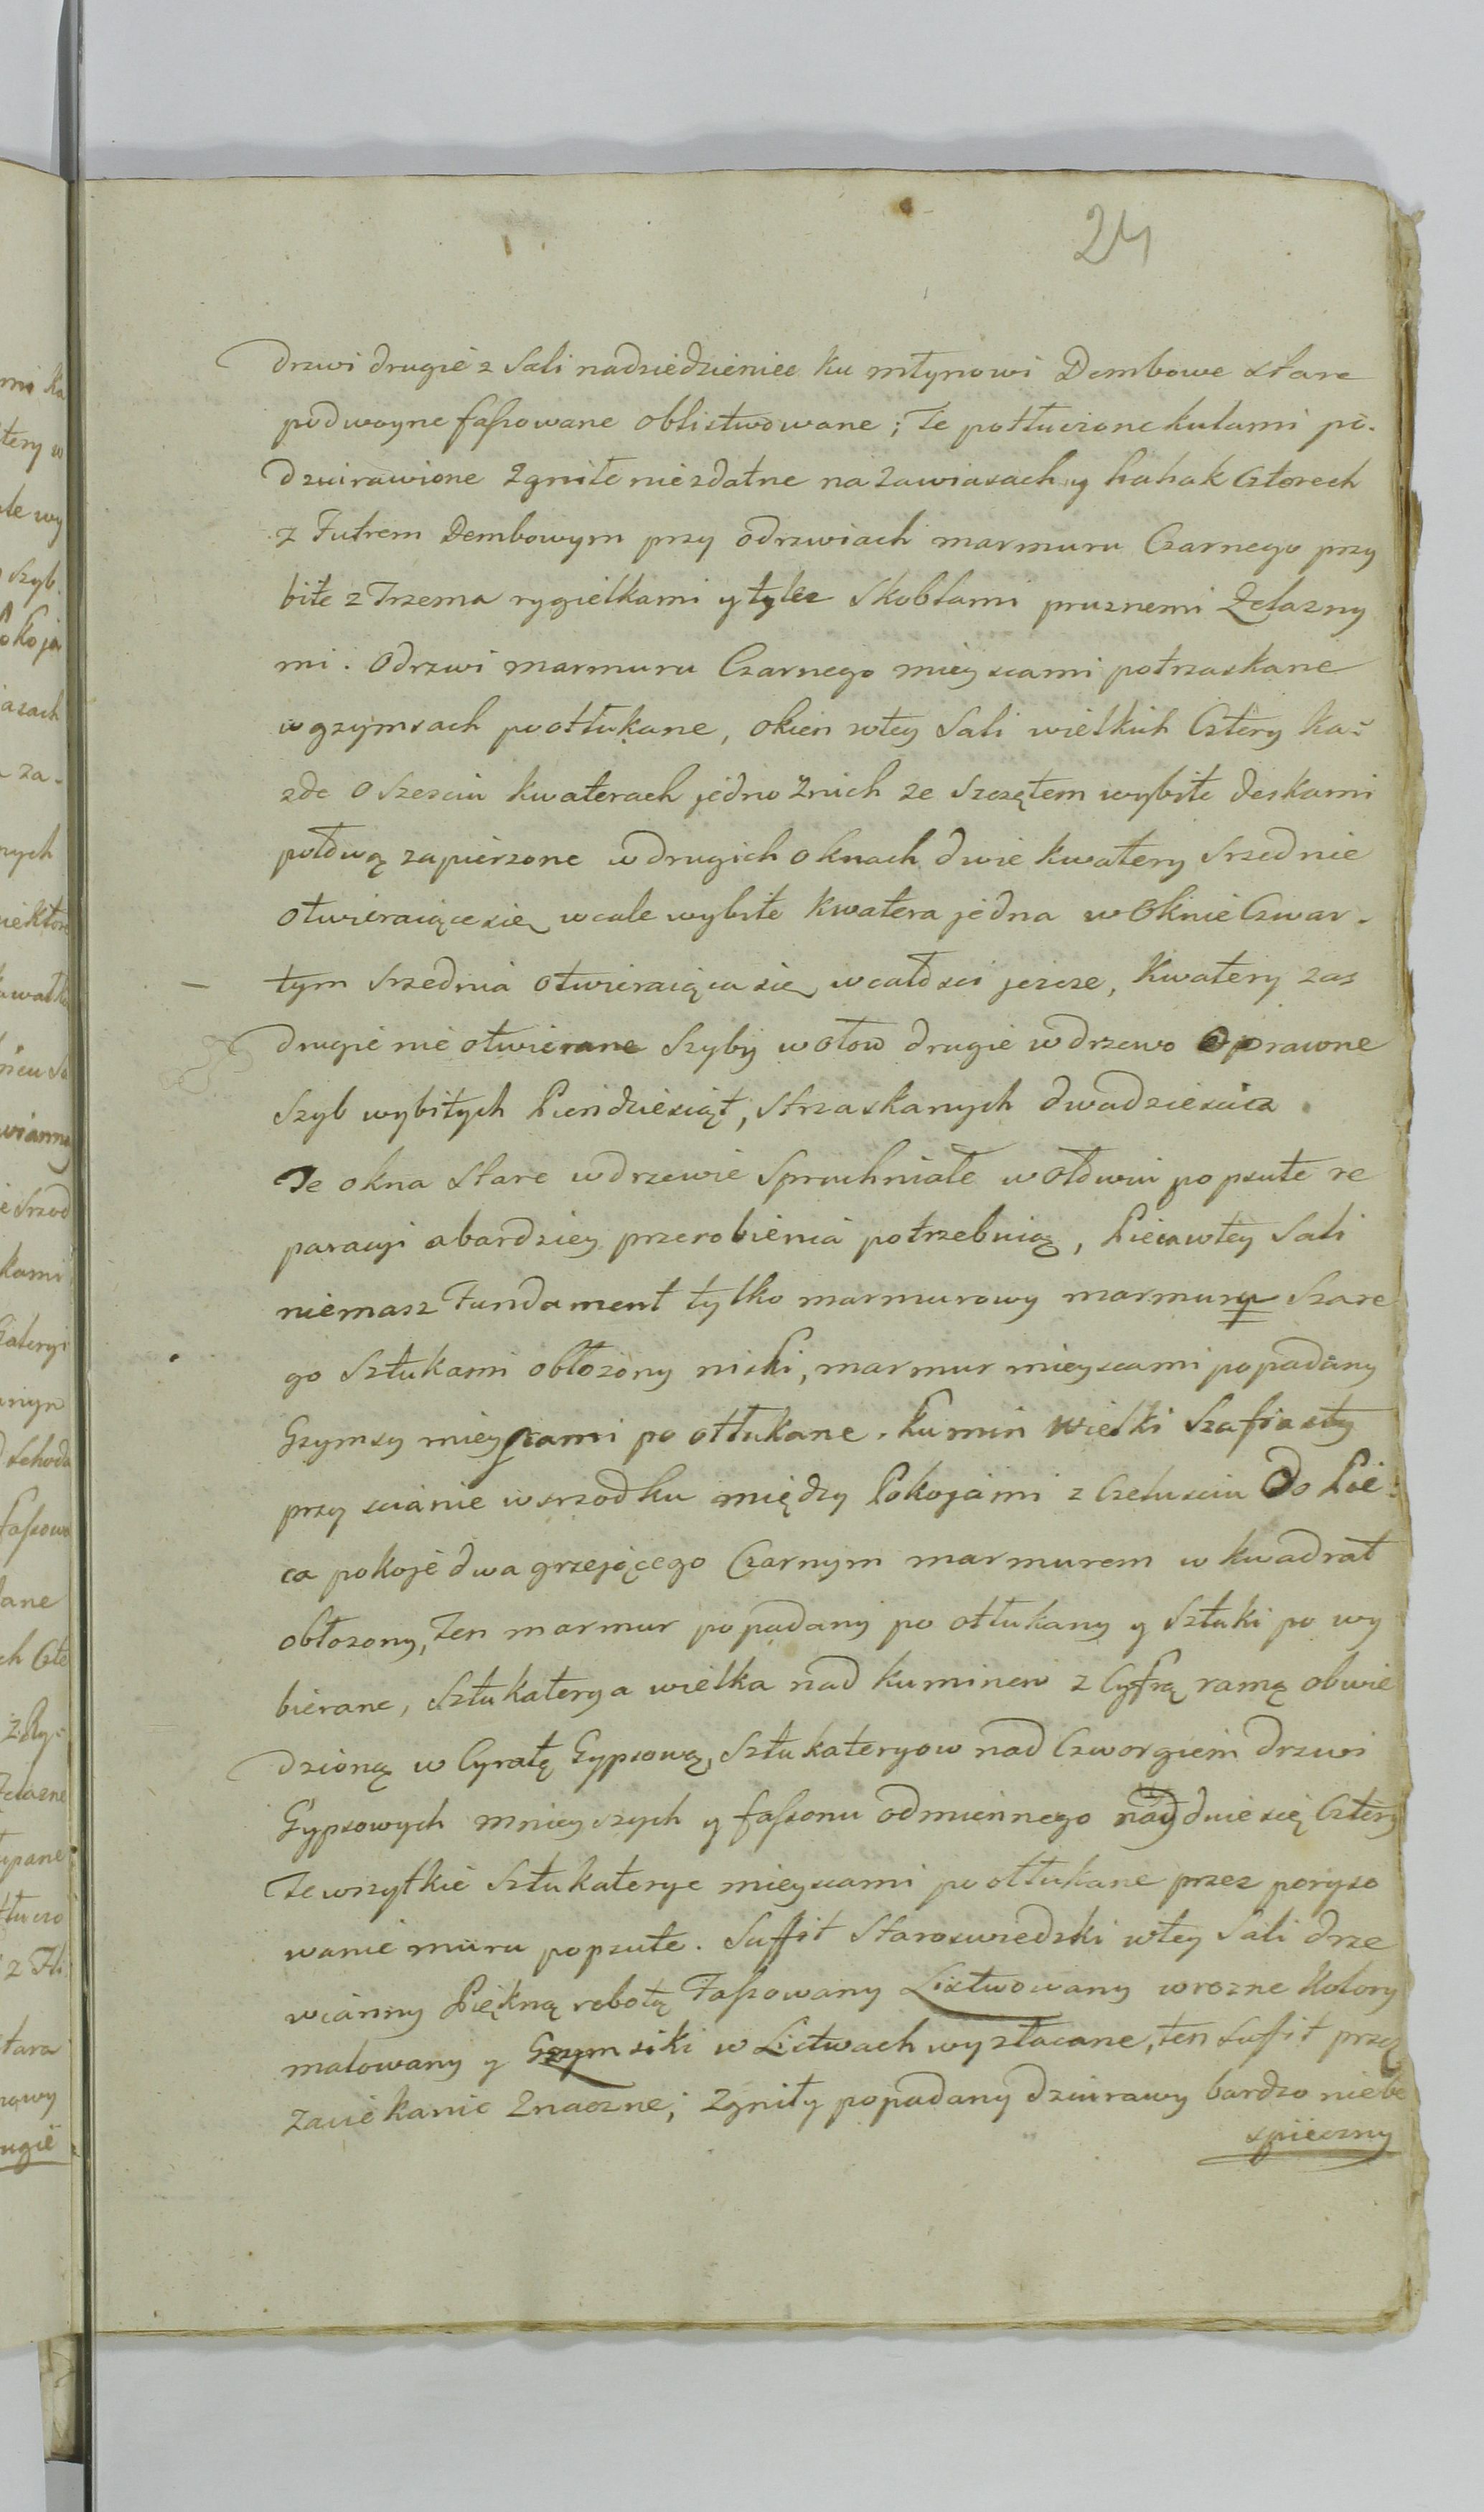 24
drzwi drugie z Sali nadziedzieniec ku młynowi Dembowe stare
podwoyne faszowane oblistwowane; Te potłuczone kulami po-
dziurawione zgniłe niezdatne na zawiasach y hakak Cztorech
z Futrem Dembowym przy odrzwiach marmuru Czarnego przy
bite z Trzema rygielkami y tylez Skoblami pruznemi Zelazny
mi. Odrzwi marmuru Czarnego mieyscami potrzaskane
w gzymsach poottukane, okien wtey Sali wielkich Cztery ka-
zde o Szesciu kwaterach jedno znich ze Szczętem wybite deskami
połową zapierzone w drugich oknach dwie kwatery Srzednie
otwieraiące się wcale wybite kwatera jedna w Oknie Czwar-
tym Srzednia otwieraiąca się w całosci jescze, Kwatery zas
drugie nie otwierane Szyby w ołow drugie w drzewo oprawne
Szyb wybitych Piendziesiąt, strzaskanych dwadziescia
Te okna stare w drzewie Spruchniałe w ołowiu popsute re
paracyi abardziey przerobienia potrzebuią, Pieca wtey Sali
niemasz Fundament tylko marmurowy marmury Szare
go Sztukami obłozony niski, marmur mieyscami popadany
Gzymsy mieyscami po ottukane. kumin wielki Szafiasty
przy scianie wsrzodku między Pokojami z Czeluściu do Pie-
ca pokoje dwa grzejącego Czarnym marmurem w kwadrat
obłozony, Ten marmur popadany po ottukany y Sztuki po wy
bierane, Sztukaterya wielka nad kuminem z Cyfrą ramą obwie
dzioną w Cyratę Gypsową, Sztukateryow nad Czworgiem drzwi
Gypsowych mnieyszych y fassonu odmiennego naydzie się Cztery
Te wszytkie Sztukaterye mieyscami po ottukane przez poryso
wanie muru popsute. Suffit Staroswiedzki wtey Sali drze
wianny Piękną robotą Faszowany Listwowany w rozne kolory
malowany y Gzymsiki w Listwach wyzłacane, ten Suffit przez
zaciekanie Znaczne; zgniły popadany dziurawy bardzo niebe
spieczny